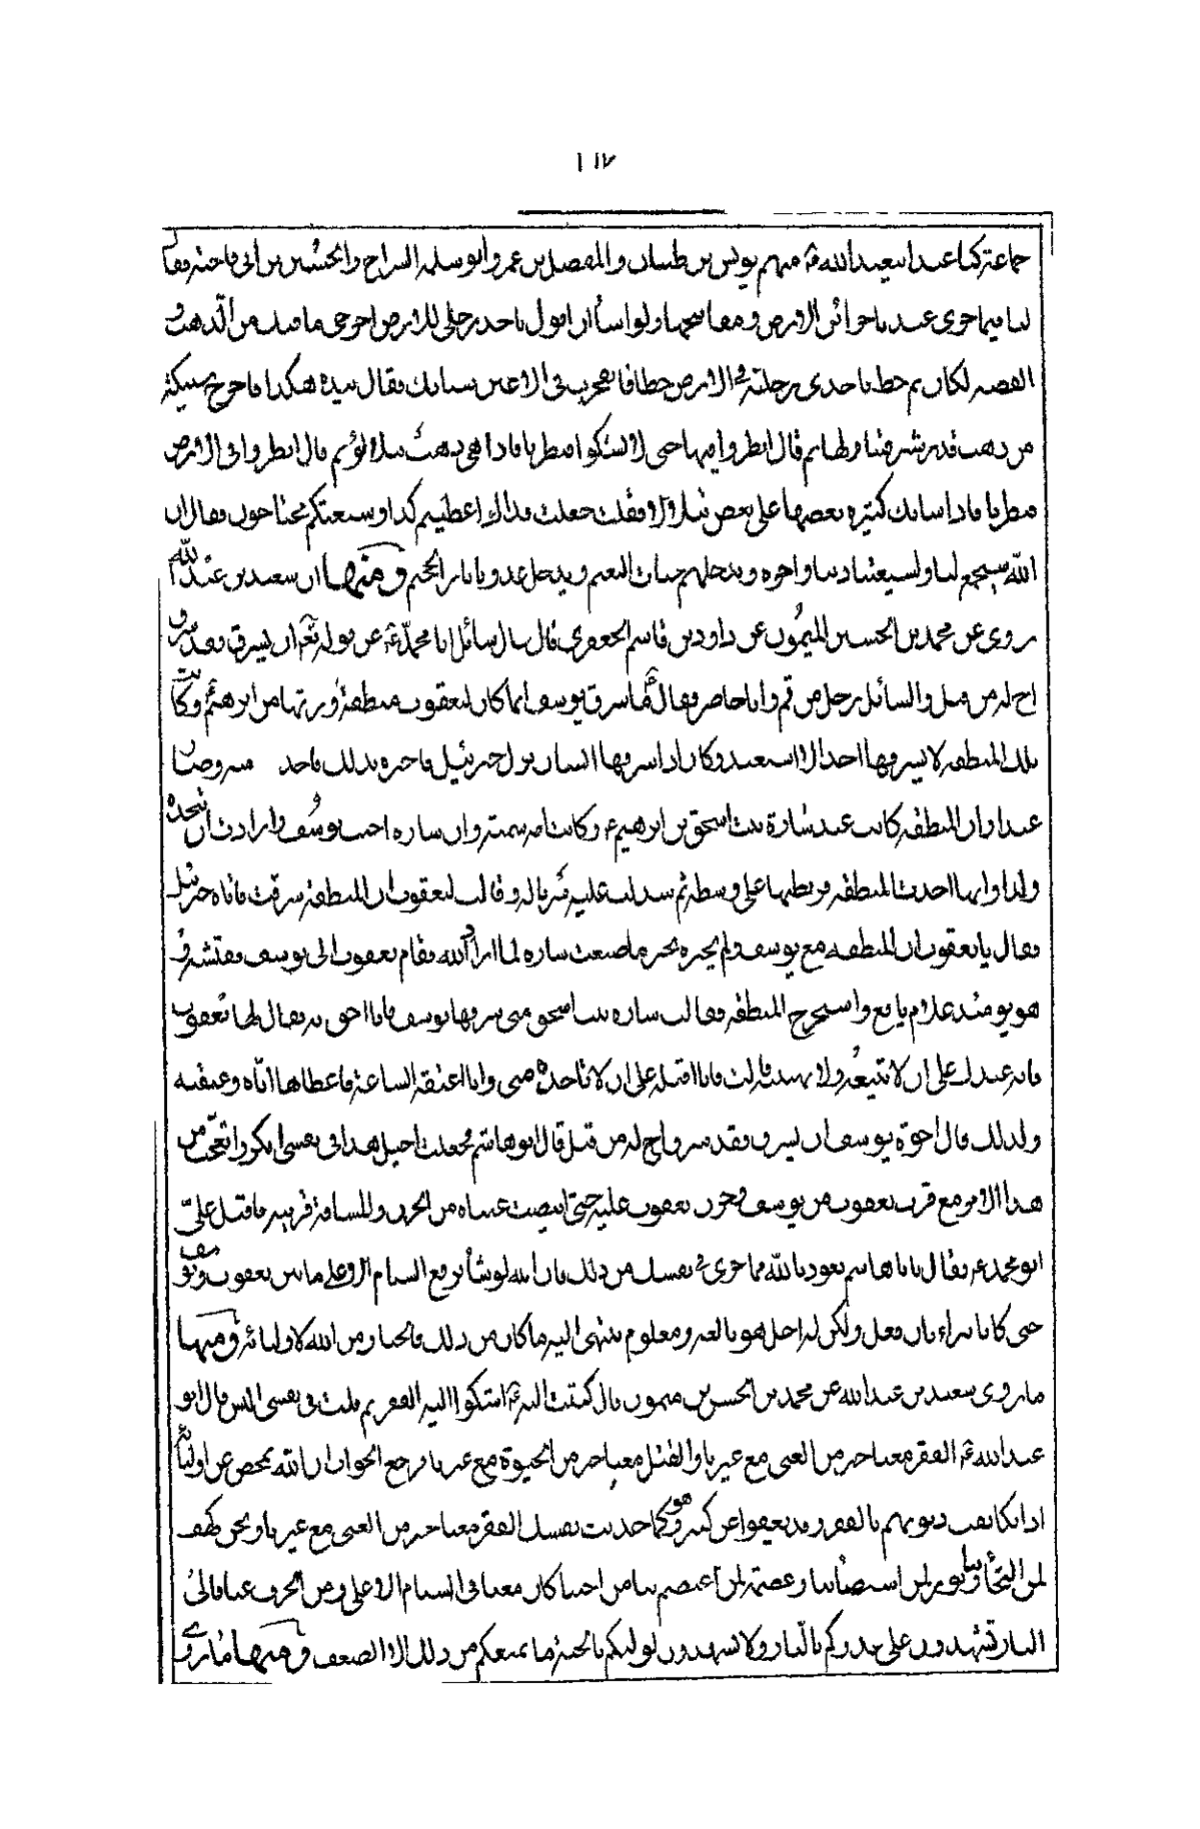 ١١٧
جماعة كنا عند ابيعبد الله ع منهم يونس بن ظبيان والمفضل بن عمر وابو سلمة السراج والحسين بن ابي فاختة فقال
لنا فيما جرى عندنا خزائن الارض ومفاتيحها ولو اشأ ان اقول باحد رجلي للارض اخرجى ما فيك من الذهب و
الفضة لكان ثم خط باحدى رجليه في الارض خطا فانفجرت الارض عن سبائك فقال بيده هكذا فاخرج سبيكة
من ذهب قدر شبر فتناولها ثم قال انظروا فيها حتى لا تشكوا فنظرنا فاذا هي ذهب يتلألؤ ثم قال انظروا الى الارض
فنظرنا فاذا سبائك كثيرة بعضها على بعض يتلألأ فقلت جعلت فداك اعطيتم كذا وشيعتكم محتاجون فقال ان
الله سيجمع لنا ولشيعتنا دنيا واخرة ويدخلهم جنات النعيم ويدخل عدونا نار الجحيم ومنها ان سعيد بن عبد الله
روى عن محمد بن الحسين الميمون عن داود بن قاسم الجعفرى قال سال سائل ابا محمد ع عن قوله تعم ان يسرق فقد سرق
اخ له من قبل والسائل رجل من قم وانا حاضر فقال ع ما سرق يوسف انما كان ليعقوب منطقة ورثها من ابرهيم وكانت
تلك المنطقة لا يسرقها احد الا استعبد وكان اذا سرقها انسان نزل جبرئيل فاخبره بذلك فاخذ منه وصار
عبدا وان المنطقة كانت عند سارة بنت اسحق بن ابرهيم ع وكانت وان سارة احبت يوسف وارادت ان تتخذه
ولدا وانها اخذت المنطقة فربطتها على وسطه ثم سدلت عليه سرباله وقالت ليعقوب ان المنطقة سرقت فاتاه جبرئيل
فقال يا يعقوب ان المنطقة مع يوسف ولم يخبره بخبر ما صنعت سارة لما اراد الله فقام يعقوب الى يوسف ففتشه و
هو يومئذ غلام يافع واستخرج المنطقة فقالت سارة بنت اسحق منى سرقها يوسف فانا احق به فقال لها يعقوب
فانه عبدك على ان لا تبيعيه ولا تهبيه قالت فانا اقبله على ان لا تاخذه منى وانا اعتقه الساعة فاعطاها اياه وعتقته
ولذلك قال اخوة يوسف ان يسرق فقد سرق اخ له من قبل قال ابو هاشم فجعلت احيل هذا في نفسي افكر واتعجب من
هذا الامر مع قرب يعقوب من يوسف وحزن يعقوب عليه حتى ابيضت عيناه من الحزن والمسافة قريبة فاقبل علي
ابو محمد ع فقال يا ابا هاشم نعوذ بالله مما جرى في نفسك من ذلك فان الله لو شأ يرفع السنام الاعلى ما بين يعقوب ويوسف
حتى كانا يتراءيان فعل ولكن له اجل هو بالغه ومعلوم ينتهى اليه ما كان من ذلك فالخيار من الله لاوليائه ومنها
ما روى سعيد بن عبد الله عن محمد بن الحسن بن ميمون قال كتبت اليه ع اشكوا اليه الفقر ثم قلت في نفسي اليس قال ابو
عبد الله ع الفقر معنا خير من الغنى مع غيرنا والقتل معنا خير من الحيوة مع غيرنا فرجع الجواب ان الله يمحص عن اوليائنا
اذا تكاثفت ذنوبهم بالفقر وقد يعفوا عن كثير وهو كما حدثت نفسك الفقر معنا خير من الغنى مع غيرنا ونحن كهف
لمن التجأ ونور لمن استضأ بنا وعصمة لمن اعتصم بنا من احبنا كان معنا في السنام الاعلى ومن انحرف عنا فالى
النار تشهدون على عدوكم بالنار ولا تشهدون لوليكم بالجنة ما يمنعكم من ذلك الا الضعف ومنها ما روى